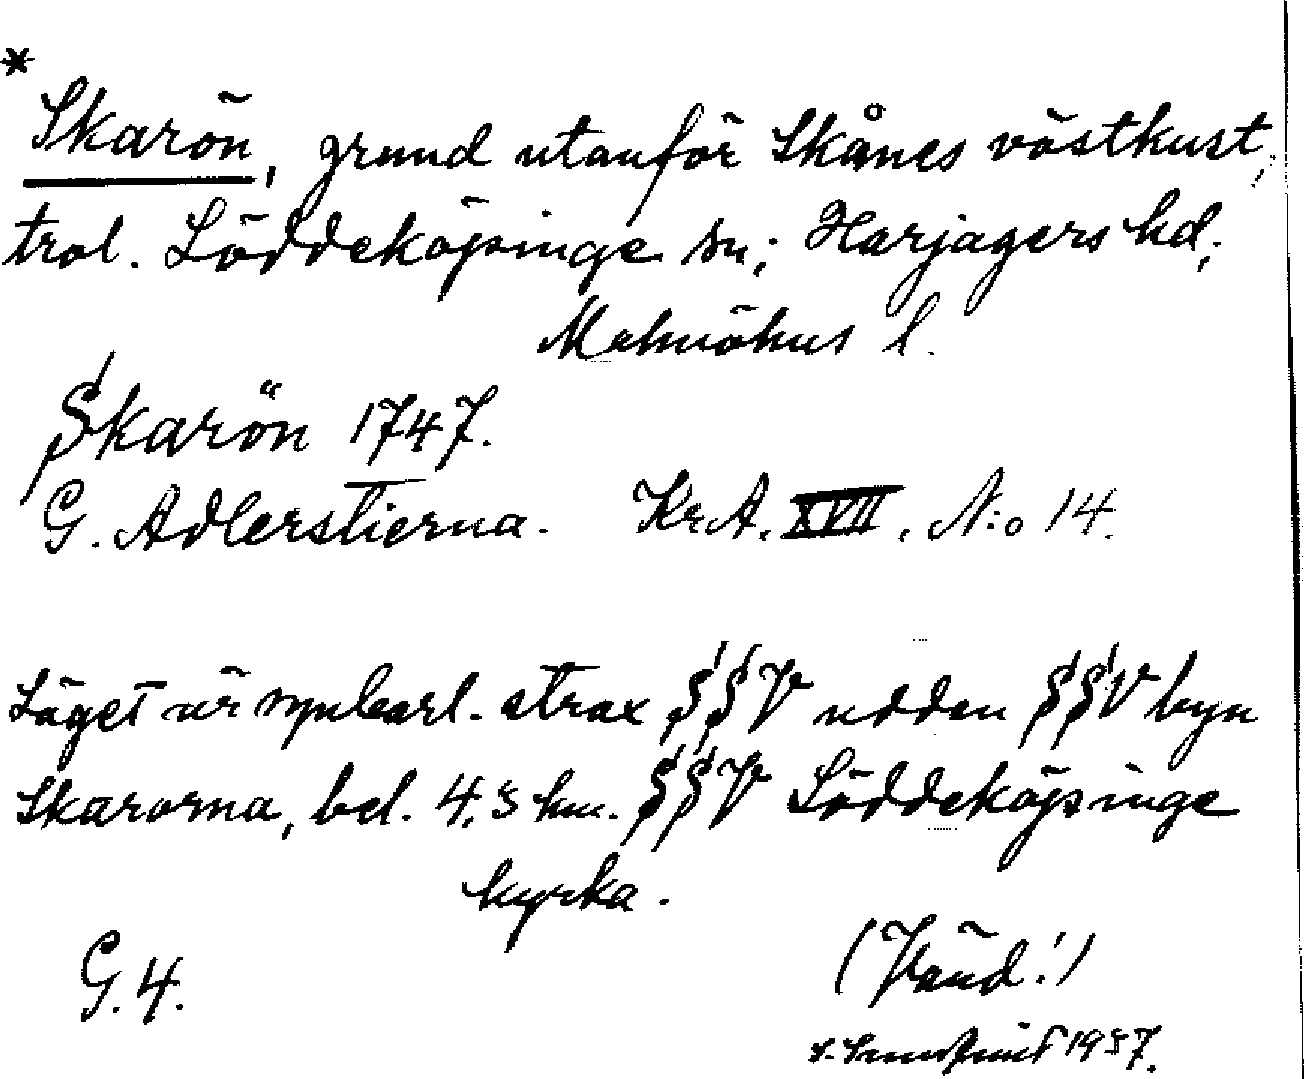 *
Skarön, grund utanför Skånes västkust,
trol. Löddeköpinge sn; Harjagers hd;
Malmöhus l.
Skarön 1747.
G. Adlerstierna. KrA. XVII. N:o 14.
Läget är synbarl. strax SSV udden SSV byn
Skarorna, bel. 4,5 km. SSV Löddeköpinge
kyrka.
G. 4.
(Vänd!)
1957.